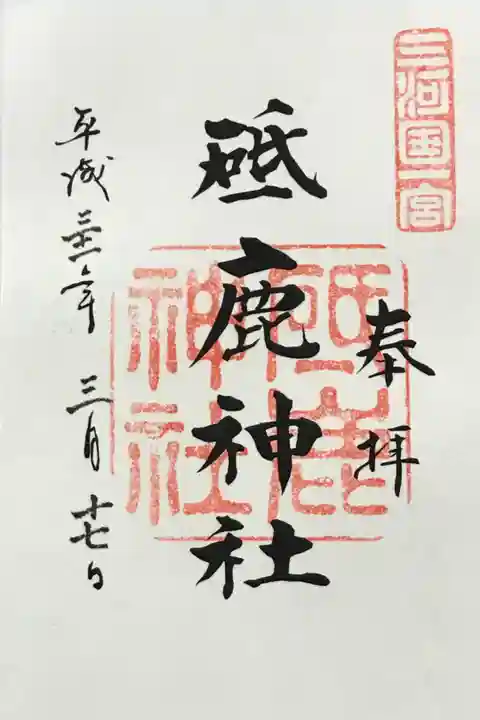 三河国一宮
奉拝
砥鹿神社
砥鹿
神社
平成三十一年 三月 十七日